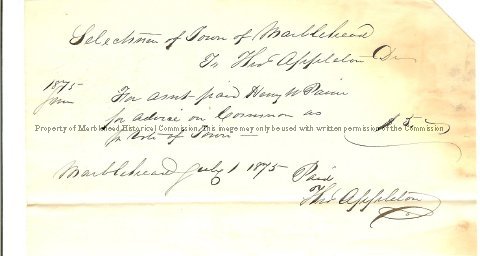 Selectmen of Town of Marblehead
To Thos Appleton Dr
1875
June
For amt paid Henry W Paine
for advice on Common as
Property of Marblehead Historical Commission. This image may only be used with written permission of the Commission
$ 5
pr Vote of Town
Marblehead July 1 1875
Paid
Thos Appleton